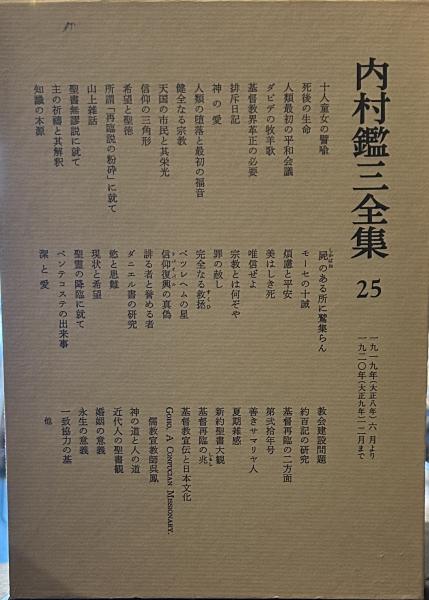 内村鑑三全集 25
一九一九年(大正八年)六月より
一九二〇年(大正九年)一二月まで
十人童女の譬喩
死後の生命
人類最初の平和会議
ダビデの牧羊歌
基督教界革正の必要
排斥日記
神の愛
人類の堕落と最初の福音
健全なる宗教
天国の市民と其栄光
信仰の三角形
希望と聖徳
所謂「再臨説の粉砕」に就て
山上雑話
聖書無謬説に就て
主の祈禱と其解釈
知識の本源
屍のある所に鷲集らん
モーセの十誡
煩慮と平安
美はしき死
唯信ぜよ
宗教とは何ぞや
罪の赦し
完全なる救拯
ベツレヘムの星
信仰復興の真偽
誹る者と誉める者
ダニエル書の研究
慾と患難
現状と希望
聖霊の降臨に就て
ペンテコステの出来事
深と愛
教会建設問題
約百記の研究
基督再臨の二方面
第弐拾年号
善きサマリヤ人
夏期雑感
新約聖書大観
基督再臨の兆
基督教宣伝と日本文化
GOHO, A CONFUCIAN MISSIONARY.
儒教宣教師呉鳳
神の道と人の道
近代人の聖書観
婚姻の意義
永生の意義
一致協力の基
他